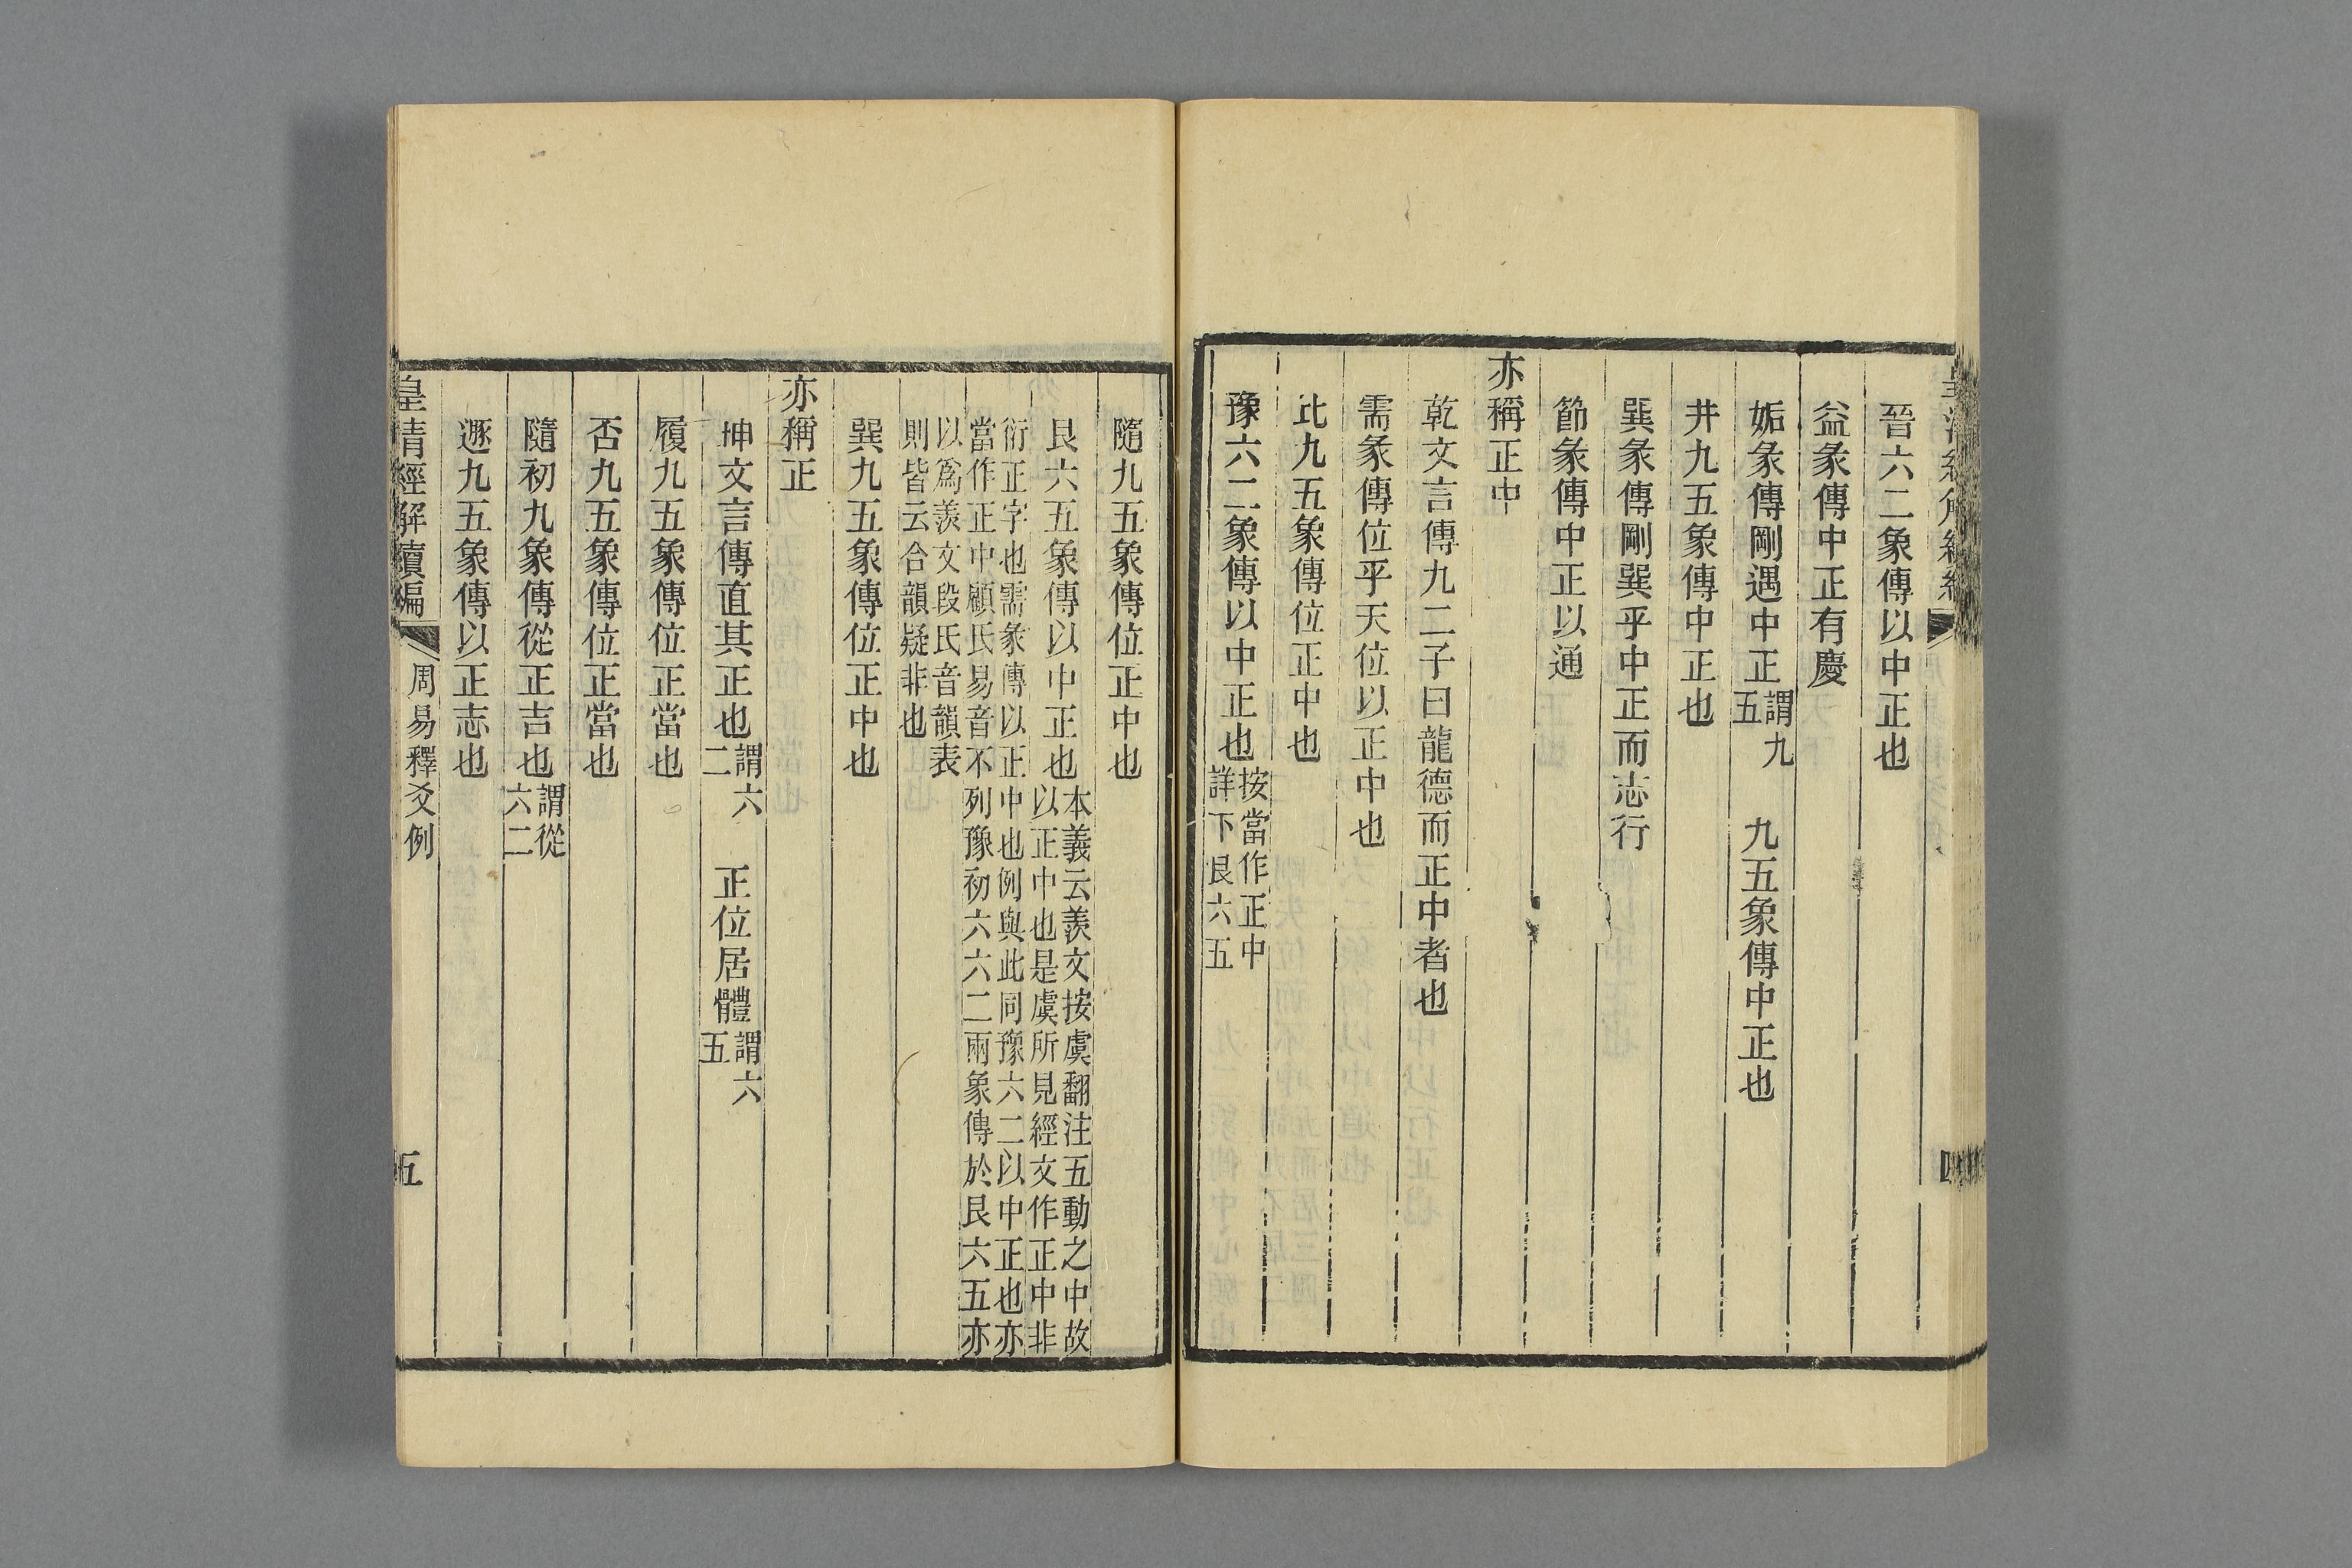 晉六二象傳以中正也
益彖傳中正有慶
姤彖傳剛遇中正謂九五　九五象傳中正也
井九五象傳中正也
巽彖傳剛巽乎中正而志行
節彖傳中正以通
亦稱正中
乾文言傳九二子曰龍德而正中者也
需彖傳位乎天位以正中也
比九五象傳位正中也
豫六二象傳以中正也按當作正中詳下艮六五
隨九五象傳位正中也
艮六五象傳以中正也本義云羨文按虞翻注五動之中故以正中也是虞所見經文作正中非
衍正字也需彖傳以正中也例與此同豫六二以中正也亦當作正中顧氏易音不列豫初六六二兩象傳於艮六五亦
以爲羨文段氏音韻表則皆云合韻疑非也
巽九五象傳位正中也
亦稱正
坤文言傳直其正也謂六二　正位居體謂六五
履九五象傳位正當也
否九五象傳位正當也
隨初九象傳從正吉也謂從六二
遯九五象傳以正志也
皇清經解續編　周易釋爻例　五